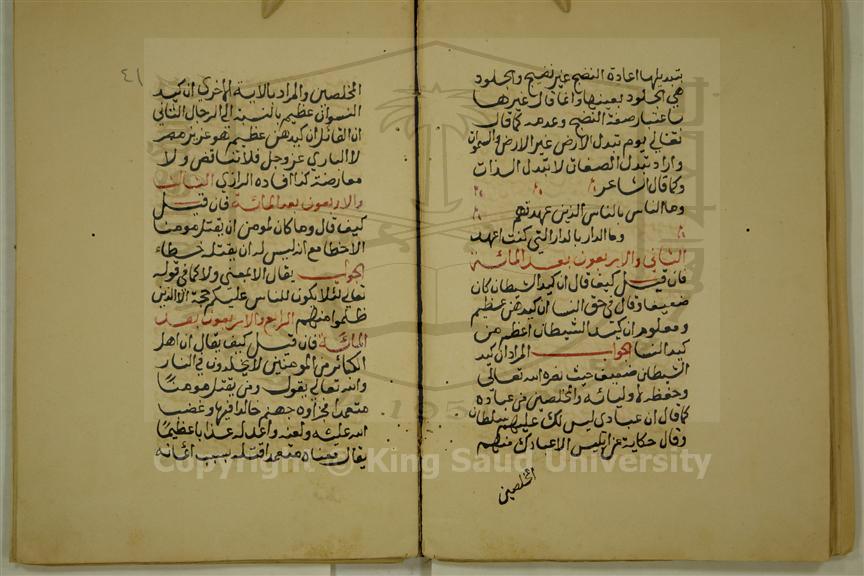 بتبديلها اعادة النضج غير نضيج والجلود
هي الجلود بعينها وانما قال غيرها
باعتبار صفة النضج وعدمه كما قال
تعالى يوم تبدل الارض غير الارض والسموات
واراد تبدل الصفات لا تبدل الذات
وكما قال الشاعر
وما الناس بالناس الذين عهدتهم
وما الدار بالدار التي كنت اعهد
الثاني والاربعون بعد المائة
فان قيل كيف قال ان كيد الشيطان كان
ضعيفا وقال في حق النسا ان كيدهن عظيم
ومعلوم ان كيد الشيطان اعظم من
كيد النسا الجواب المراد ان كيد
الشيطان ضعيف حيث نصره الله تعالى
وحفظه لاوليائه والمخلصين من عباده
كما قال ان عبادي ليس لك عليهم سلطان
وقال حكاية عن ابليس الا عبادك منهم
المخلصين
٤١
المخلصين والمراد بالاية الاخرى ان كيد
النسوان عظيم بالنسبة الى الرجال الثاني
ان القائل ان كيدهن عظيم هو عزيز مصر
لا الباري عز وجل فلا تناقض ولا
معارضة كذا افاده الرازي الثالث
والاربعون بعد المائة فان قيل
كيف قال وما كان لمومن ان يقتل مومنا
الا خطا مع انه ليس له ان يقتله خطاء
الجواب يقال الا بمعنى ولا كما في قوله
تعالى لئلا يكون للناس عليكم حجة الا الذين
ظلموا منهم الرابع والاربعون بعد
المائة فان قيل كيف يقال ان اهل
الكبائر من المومنين لا يخلدون في النار
والله تعالى يقول ومن يقتل مومنا
متعمدا فجزاوه جهنم خالدا فيها وغضب
الله عليه ولعنه واعد له عذابا عظيما
يقال معناه متعمدا قتله بسبب ايمانه
Copyright © King Saud University
1957